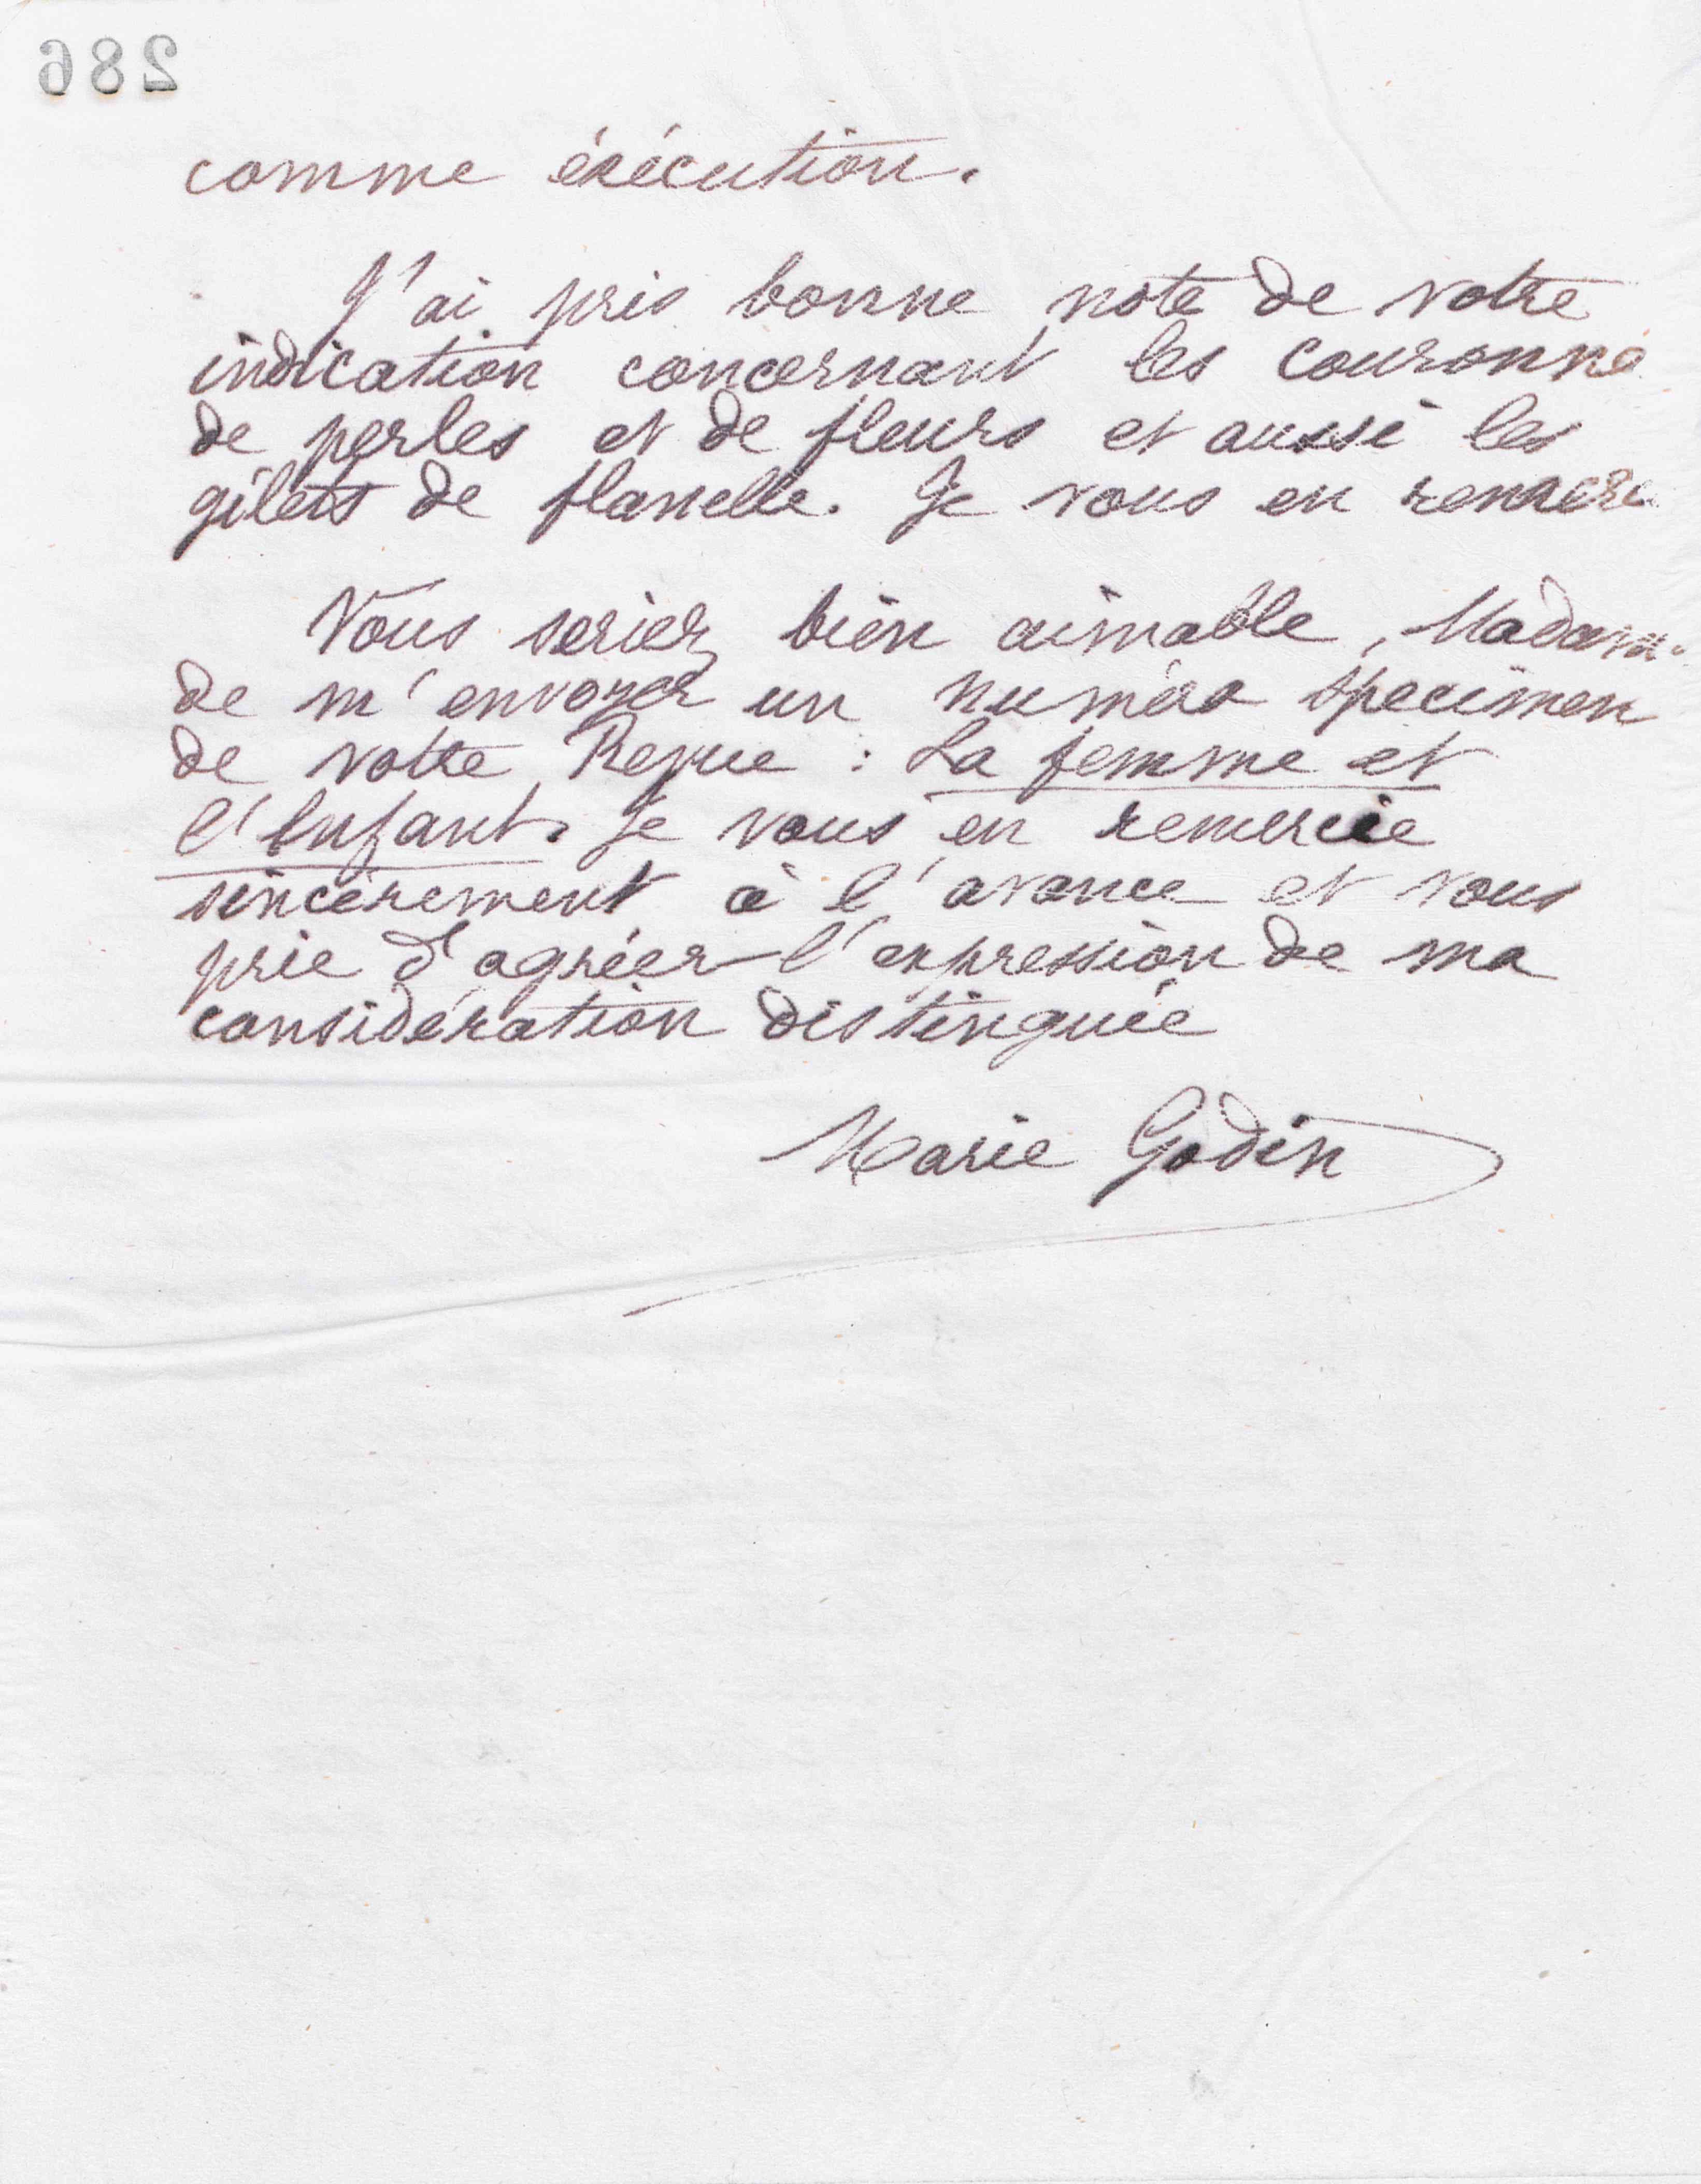 286
comme éxécution.
J'ai pris bonne note de votre
indication concernant les couronne
de perles et de fleurs et aussi les
gilets de flanelle. Je vous en remercie
Vous seriez bien aimable, Madame
de m'envoyer un numéro specimen
de votre Revue : La femme et
l'Enfant. Je vous en remercie
sincèrement à l'avance et vous
prie d'agréer l'expression de ma
considération distinguée
Marie Godin